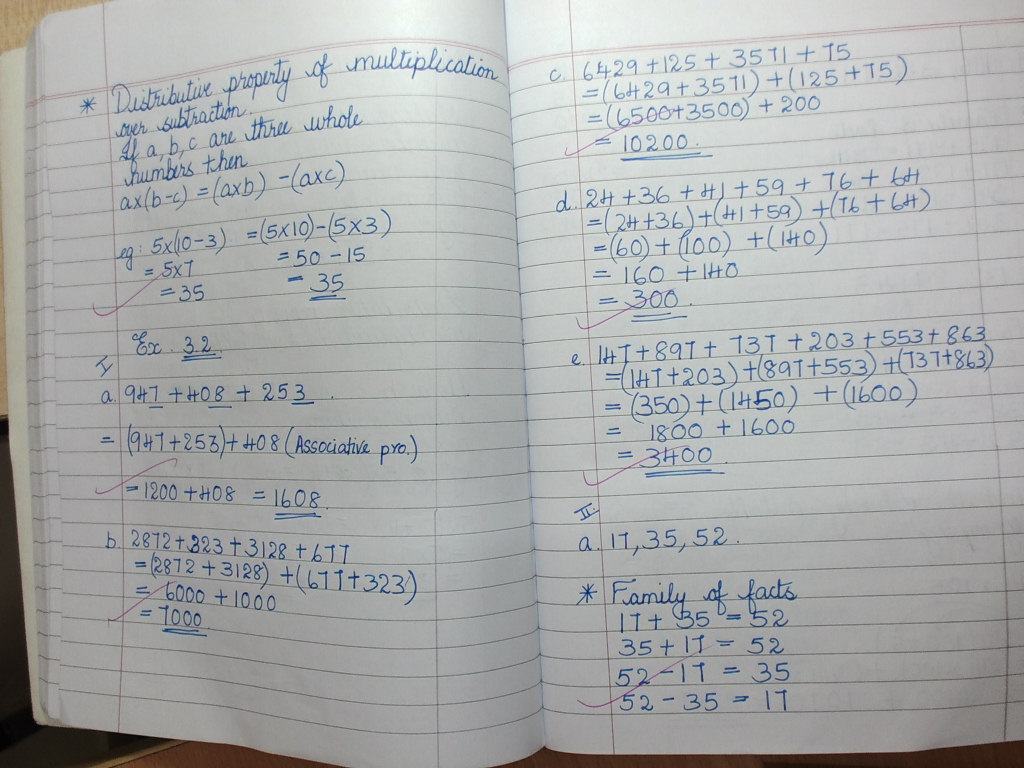 * Distributive property of multiplication
over subtraction.
If a, b, c are three whole
numbers then
a×(b-c) = (a×b) - (a×c)
eg: 5×(10-3) = (5×10)-(5×3)
= 5×7 = 50 - 15
= 35 = 35
Ex. 3.2
I
a. 947 + 408 + 253.
= (947+253)+408 (Associative pro.)
= 1200 + 408 = 1608.
b. 2872+323+3128+677
= (2872+3128) + (677+323)
= 6000 + 1000
= 7000
c. 6429+125+3571+75
= (6429+3571)+(125+75)
= (6500+3500) + 200
= 10200.
d. 24+36+41+59+76+64
= (24+36)+(41+59)+(76+64)
= (60)+(100)+(140)
= 160 + 140
= 300.
e. 147+897+737+203+553+863
= (147+203)+(897+553)+(737+863)
= (350)+(1450)+(1600)
= 1800 + 1600
= 3400
II.
a. 17, 35, 52.
* Family of facts
17 + 35 = 52
35 + 17 = 52
52 - 17 = 35
52 - 35 = 17